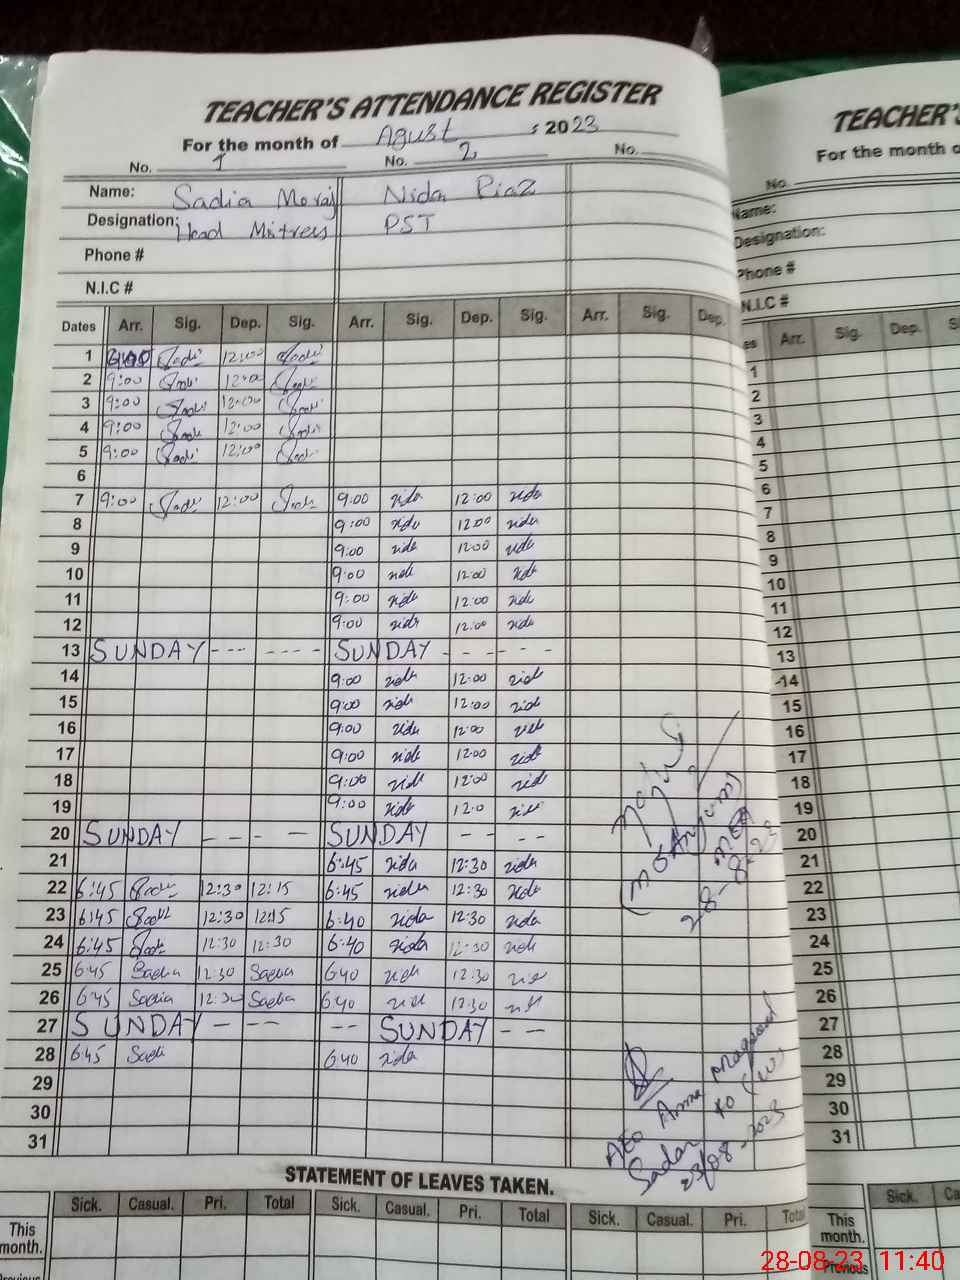 TEACHER'S ATTENDANCE REGISTER
For the month of Agust : 2023
No. 1 No. 2 No.
Name: Sadia Meraj Nida Riaz
Designation: Head Mistress PST
Phone #
N.I.C #
Dates Arr. Sig. Dep. Sig. Arr. Sig. Dep. Sig. Arr. Sig. Dep.
1 12:00
2 9:00 12:00
3 9:00 12:00
4 9:00 12:00
5 9:00 12:00
6
7 9:00 12:00 9:00 nida 12:00 nida
8 9:00 nida 12:00 nida
9 9:00 nida 12:00 nida
10 9:00 nida 12:00 nida
11 9:00 nida 12:00 nida
12 9:00 nida 12:00 nida
13 SUNDAY --- ---- SUNDAY - - - - - -
14 9:00 nida 12:00 nida
15 9:00 nida 12:00 nida
16 9:00 nida 12:00 nida
17 9:00 nida 12:00 nida
18 9:00 nida 12:00 nida
19 9:00 nida 12:0 nida
20 SUNDAY - - - - SUNDAY - - - -
21 6:45 nida 12:30 nida
22 6:45 12:30 12:15 6:45 nida 12:30 nida
23 6:45 12:30 12:15 6:40 nida 12:30 nida
24 6:45 12:30 12:30 6:40 nida 12:30 nida
25 6:45 Sadia 12:30 Sadia 6:40 nida 12:30 nida
26 6:45 Sadia 12:30 Sadia 6:40 nida 12:30 nida
27 SUNDAY - -- -- SUNDAY - -
28 6:45 Sadi 6:40 nida
29
30
31
(M Anjum)
MEA
28-8-23
AEO
Sadar
23/08-2023
STATEMENT OF LEAVES TAKEN.
Sick. Casual. Pri. Total Sick. Casual. Pri. Total Sick. Casual. Pri. Total
This month.
Previous
TEACHER'S
For the month o
No.
Name:
Designation:
Phone #
N.I.C #
es Arr. Sig. Dep. S
1
2
3
4
5
6
7
8
9
10
11
12
13
14
15
16
17
18
19
20
21
22
23
24
25
26
27
28
29
30
31
Sick. Ca
This month.
Previous
28-08-23 11:40